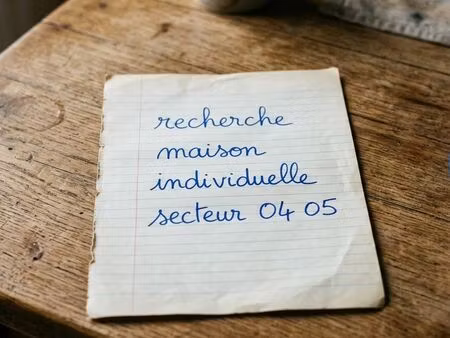 recherche
maison
individuelle
secteur 04 05